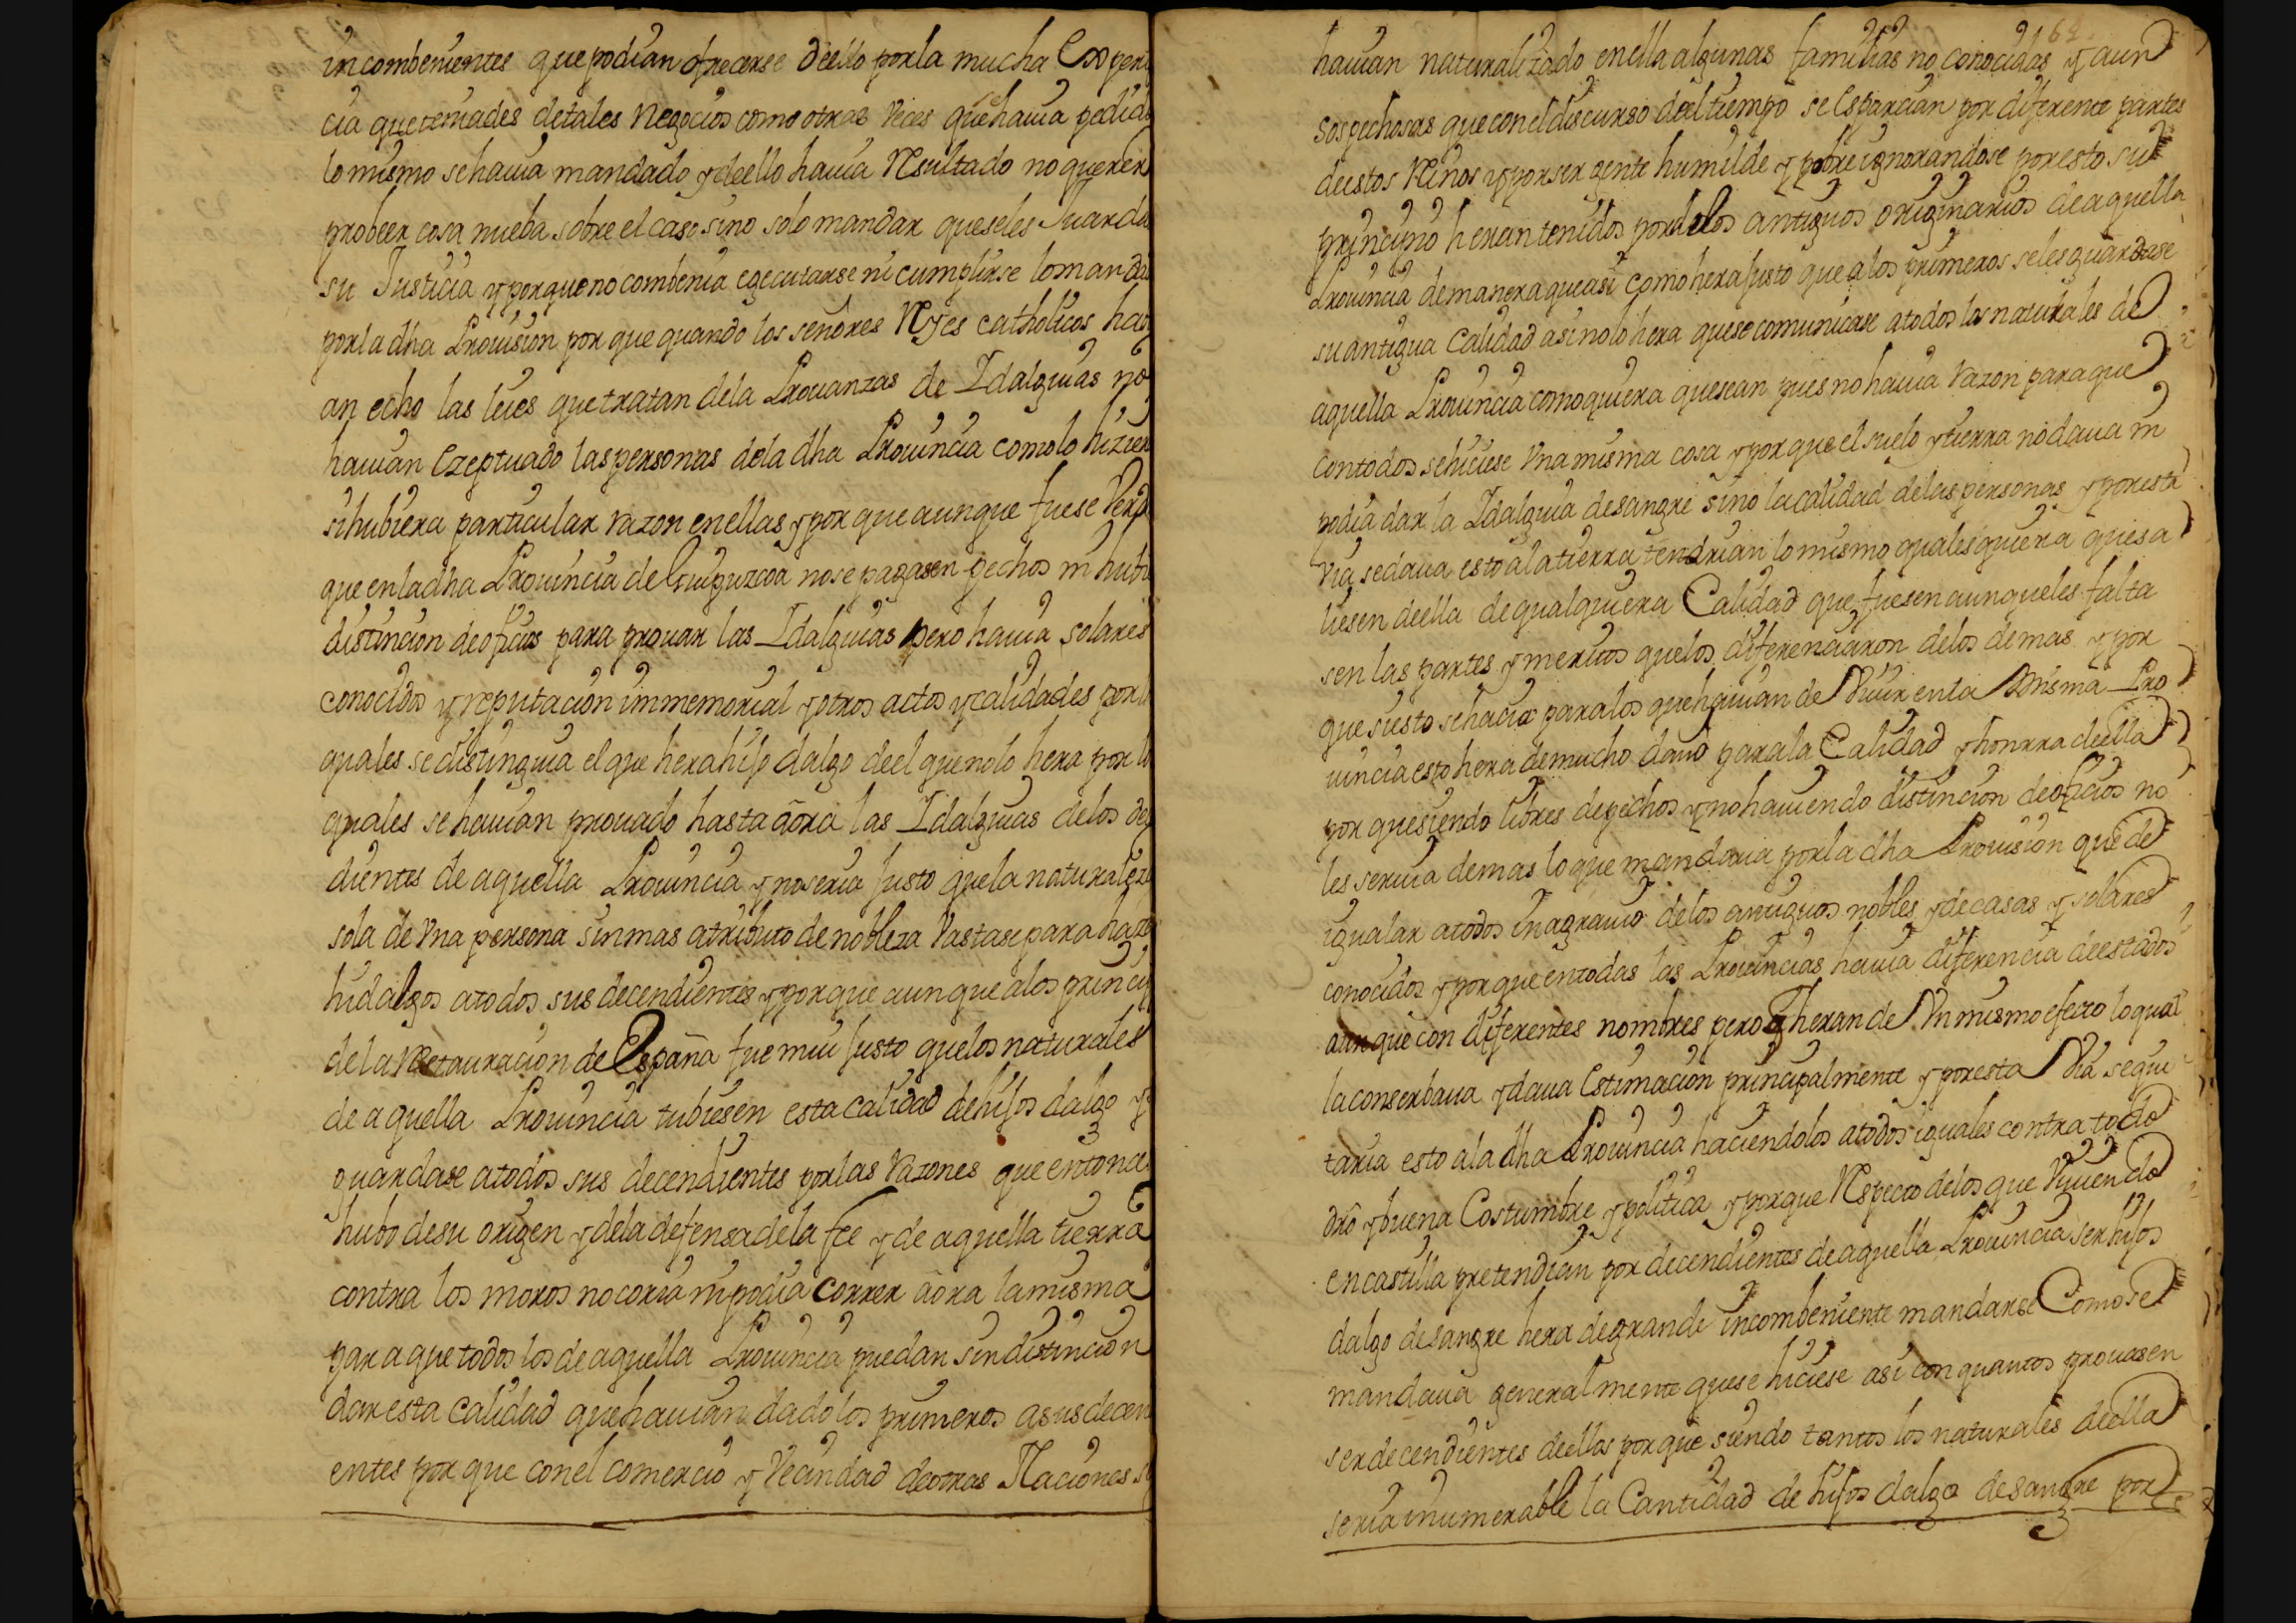 incombenientes que podian ofrecerse deello por la mucha Experi
cia que teniades de tales Negocios como otras Veces que hauia pedido
lo mismo se hauia mandado y deello hauia Resultado no querer
probeer cosa nueba sobre el caso sino solo mandar que se les Guarda
su Justicia y porque no combenia egecutarse ni cumplirse lo manda
por la dha Prouision por que quando los señores Reyes catholicos hau
an echo las leies que tratan dela Prouanzas de Idalguias no
hauian Ezeptuado las personas dela dha Prouincia como lo hizier
si hubiera particular razon en ellas y por que aunque fuese Verd
que en la dha Prouincia de Guipuzcoa no se pagasen pechos ni hubi
distincion de oficios para prouar las Idalguias pero hauia solares
conocidos y reputacion immemorial y otros actos y calidades por l
quales se distinguia el que hera hijo dalgo deel que no lo hera por lo
quales se hauian prouado hasta aora las Idalguias delos de
dientes de aquella Prouincia y no seria justo que la naturalez
sola de Vna persona sin mas atributo de nobleza Vastase para haze
hidalgos a todos sus decendientes y porque aunque a los princip
de la Restauracion de España fue mui justo que los naturales
de aquella Prouincia tubiesen esta calidad de hijos dalgo y
guardase a todos sus decendientes por las Razones que entonc
hubo de su origen y dela defensa de la fee y de aquella tierra
contra los moros no coria ni podia correr aora la misma
para que todos los de aquella Prouincia puedan sin distincion
dar esta calidad que hauian dado los primeros a sus decen
entes por que con el comercio y Vecindad de otras Naciones s
hauian naturalizado en ella algunas familias no conocidas y aun
sospechosas que con el discurso deel tiempo se Esparcian por diferente partes
de estos Reinos y por ser gente humilde y pobre ignorandose por esto su
principio heran tenidos por delos antiguos originarios de aquella
Prouincia de manera que asi como hera justo que a los primeros se les guardase
su antigua Calidad asi no lo hera que se comunicase a todos los naturales de
aquella Prouincia como quiera que sean pues no hauia razon para que
con todos se hiciese Vna misma cosa y por que el suelo y tierra no daua ni
podia dar la Idalguia de sangre sino la calidad delas personas y por esta
Via se daua esto a la tierra tendrian lo mismo qualesquiera que sa
liesen deella de qualquiera Calidad que fuesen aunque les falta
sen las partes y meritos que los diferenciaron delos demas y por
que si esto se hacia para los que hauian de Viuir en la Misma Pro
uincia esto hera de mucho daño para la Calidad y honrra deella
por que siendo libres de pechos y no hauiendo distincion de oficios no
les seruia de mas lo que mandaria por la dha Prouision que de
igualar a todos en agrauio delos antiguos nobles y de casas y solares
conocidos y por que en todas las Prouincias hauia diferencia de estados
aunque con diferentes nombres pero q heran de Vn mismo efecto lo qual
la conserbaua y daua Estimacion principalmente y por esta Via se qui
taria esto a la dha Prouincia haciendolos a todos iguales contra todo
dro y buena Costumbre y politica y porque Respecto delos que Viuiendo
en castilla pretendian por decendientes de aquella Prouincia ser hijos
dalgo de sangre hera de grande incombeniente mandarse Como se
mandaua generalmente que se hiciese asi con quantos prouasen
ser decendientes deellos porque siendo tantos los naturales deella
seria inumerable la Cantidad de hijos dalgo de sangre por